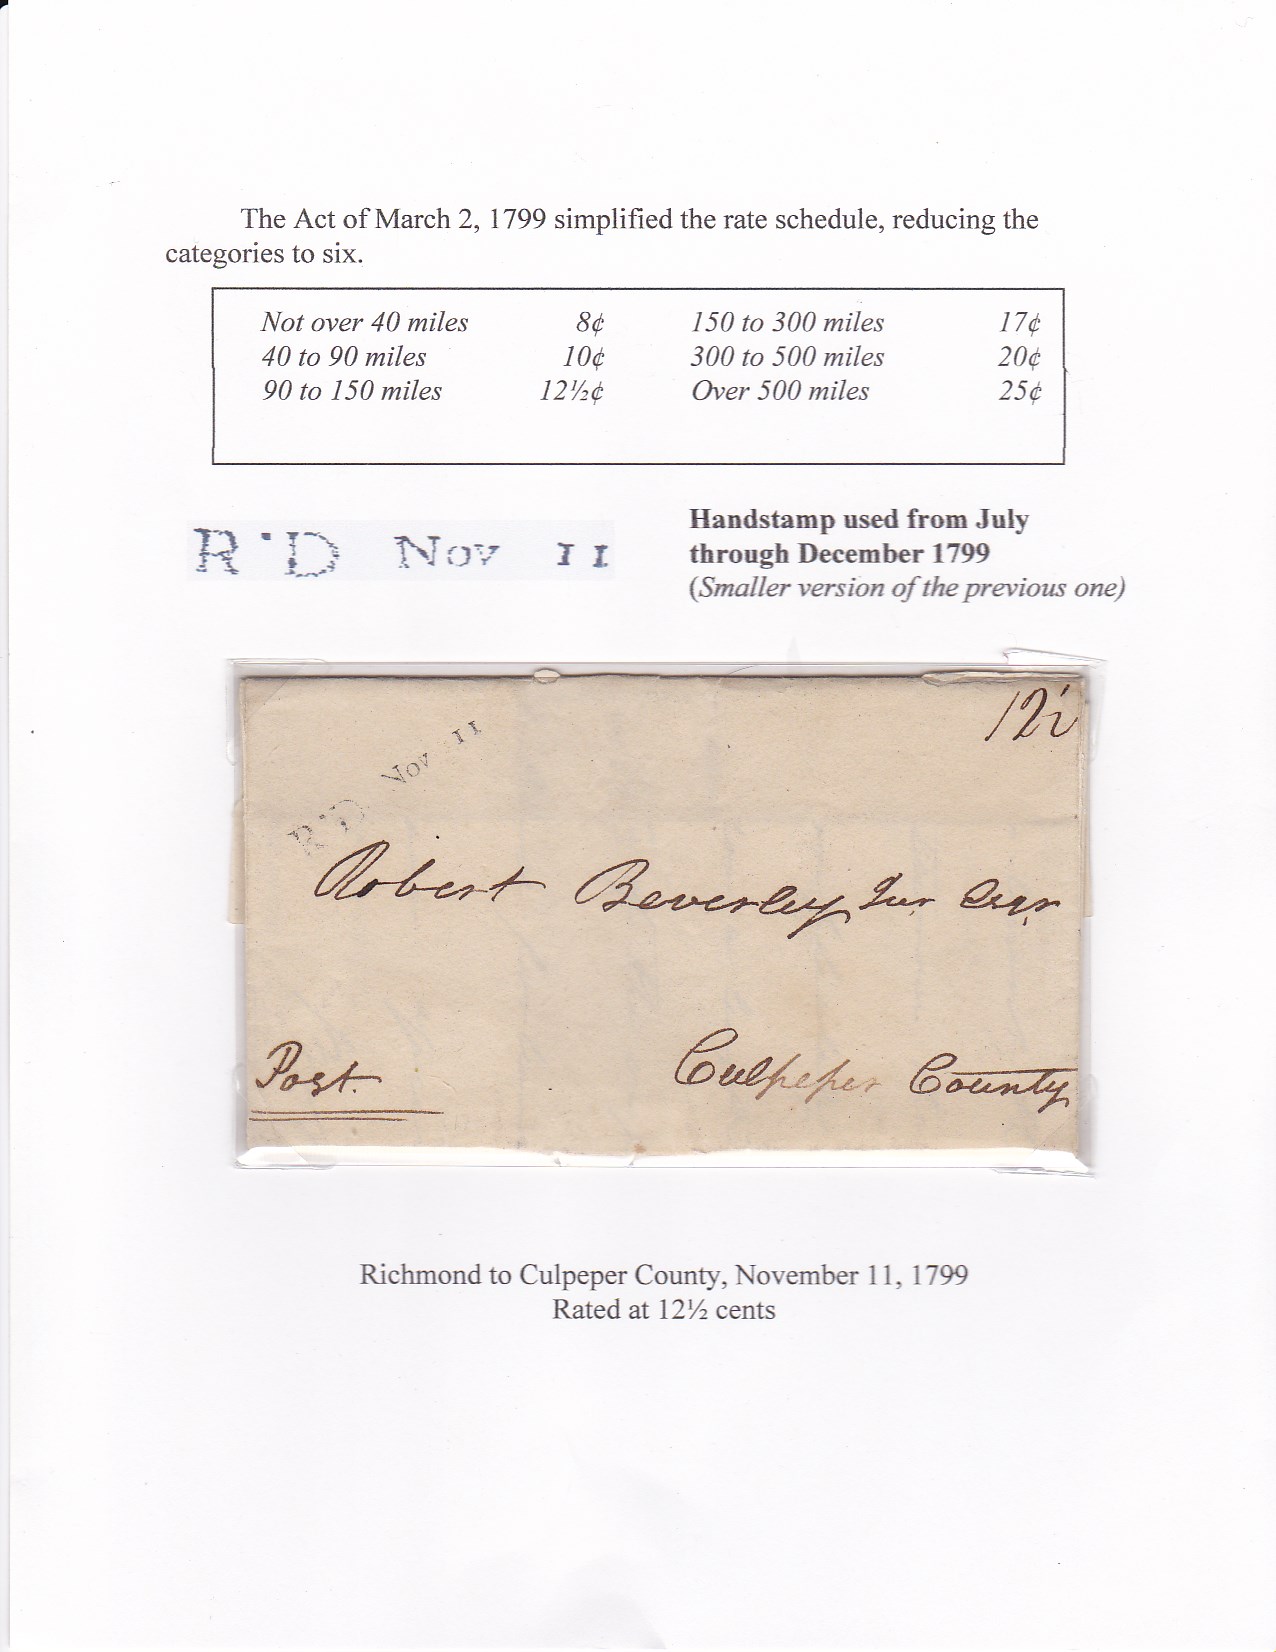 The Act of March 2, 1799 simplified the rate schedule, reducing the
categories to six.
Not over 40 miles 8¢ 150 to 300 miles 17¢
40 to 90 miles 10¢ 300 to 500 miles 20¢
90 to 150 miles 12½¢ Over 500 miles 25¢
R·D Nov 11
Handstamp used from July
through December 1799
(Smaller version of the previous one)
12½
R·D Nov 11
Robert Beverley Jur Esqr
Post.
Culpeper County
Richmond to Culpeper County, November 11, 1799
Rated at 12½ cents